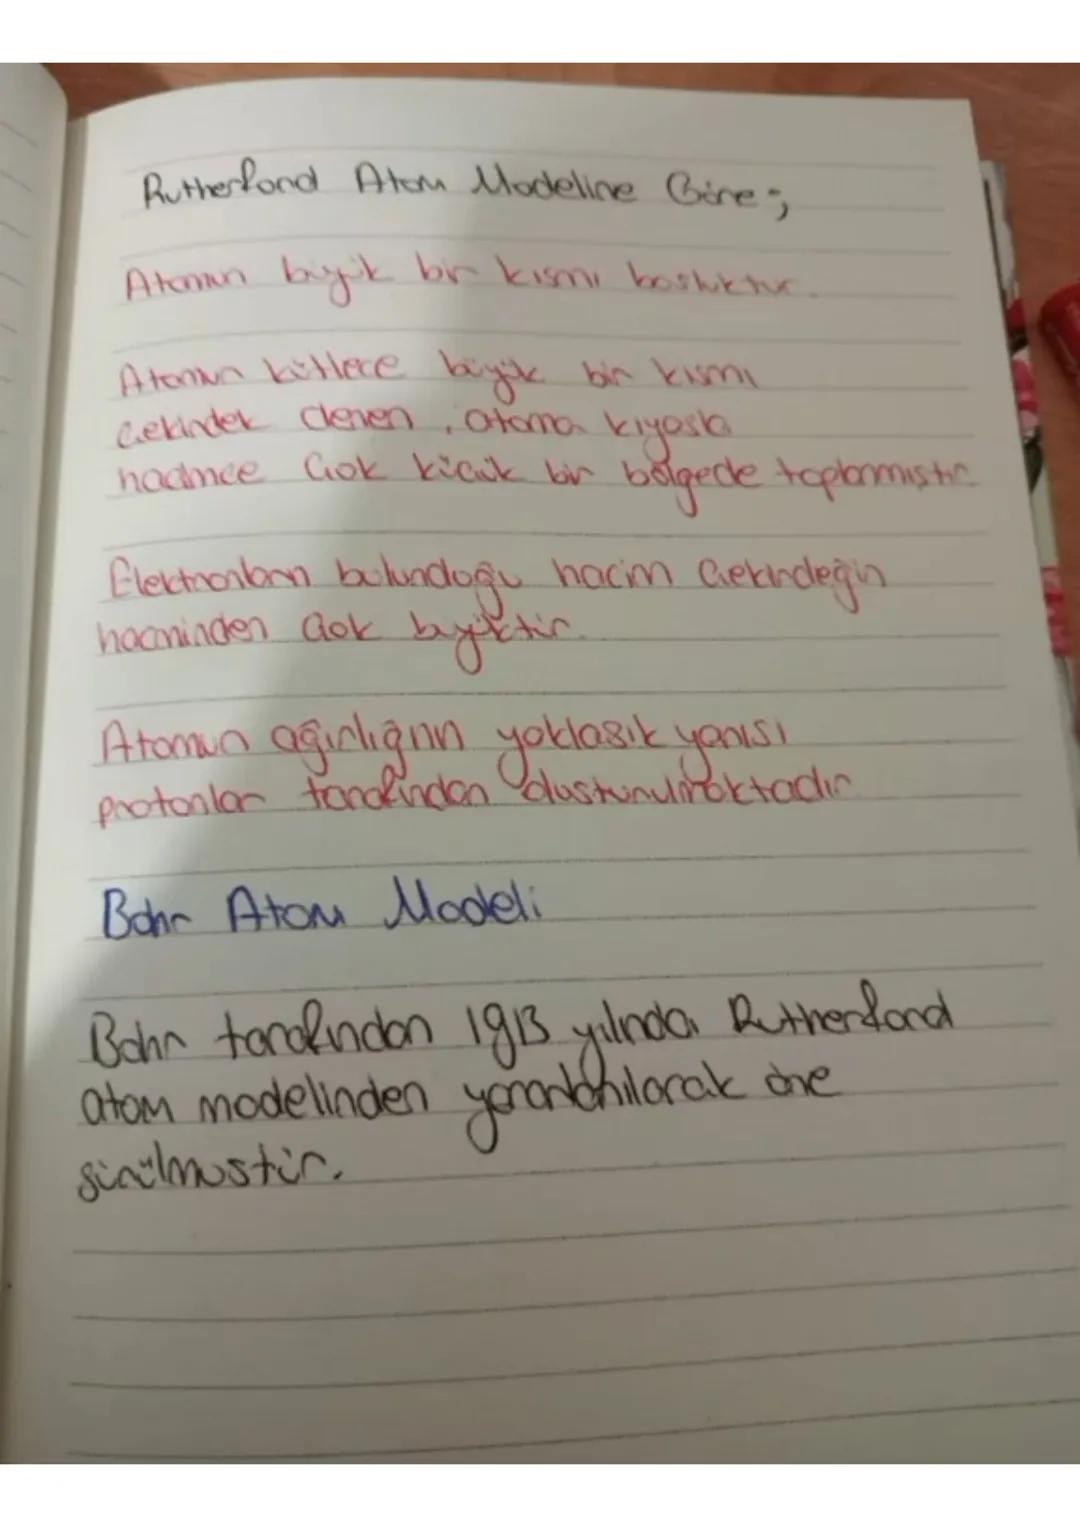 Rutherford Atom Modeline Göre;
Atomun büyük bir kısmı boşluktur.
Atomun kütlece büyük bir kısmı
çekirdek denen, atoma kıyasla
hacimce çok küçük bir bölgede toplanmıştır
Elektronların bulunduğu hacim çekirdeğin
hacminden çok büyüktür.
Atomun ağırlığının yaklaşık yarısı
protonlar tarafından oluşturulmaktadır
Bohr Atom Modeli
Bohr tarafından 1913 yılında Rutherford
atom modelinden yararlanılarak öne
sürülmüştür.